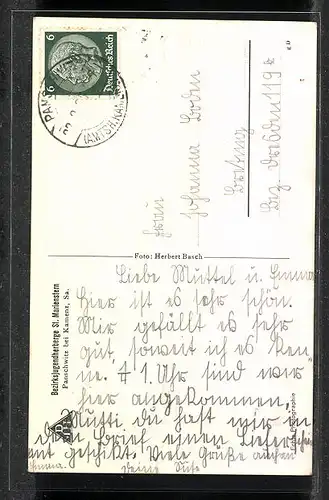 6 Deutsches Reich 6
(AMTSH. KAMENZ
Frau
Johanna Boden
Bretnig
Bez. Dresden 119
Foto: Herbert Basch
Bezirksjugendherberge St. Marienstern
Panschwitz bei Kamenz, Sa.
Liebe Muttel u. Emma
Hier ist es sehr schön.
Mir gefällt es sehr
gut, soweit ich es ken-
ne. 1 Uhr sind wir
hier angekommen.
Mutti, du hast mir in
dem Brief einen
geschikt. Viele Grüße auch an
Emma. Deine